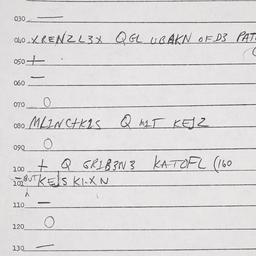 030 —
040 XRENZL3X QGL UBAKN OFD3 PAT
050 +
060 —
070 O
080 MLINC+K2S Q HIT KEJZ
090 O
100 + Q GRIB3N3 KATOFL (160
101 KEJS KI-XN
110 —
120 O
130 —